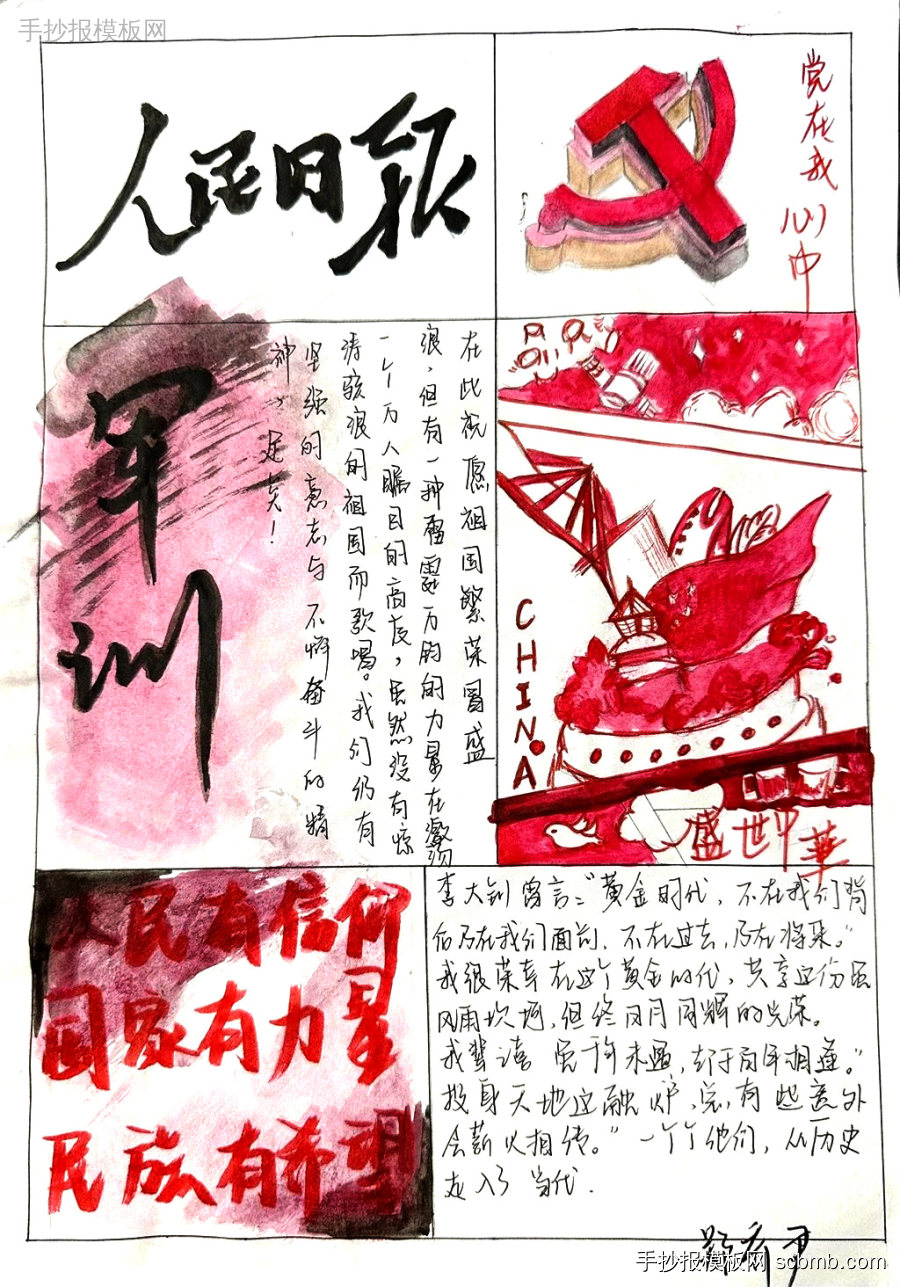 手抄报模板网
人民日报
党在我心中
军训
在此祝愿祖国繁荣昌盛
浪，但有一种雷霆万钧的力量在激励
一个万人瞩目的高度，虽然没有惊
涛骇浪的祖国而歌唱。我们仍有
坚强的意志与不懈奋斗的精
神，足矣！
CHINA
盛世中華
人民有信仰
国家有力量
民族有希望
李大钊曾言："黄金时代，不在我们背
后乃在我们面前，不在过去，乃在将来。"
我很荣幸在这个黄金时代，共享这份虽
风雨坎坷，但终日月同辉的光荣。
我辈请 虽千年未遇，却于百年相逢。"
投身天地这融炉，总有些意外
会薪火相传。"一个个他们，从历史
走入了当代.
手抄报模板网 scbmb.com